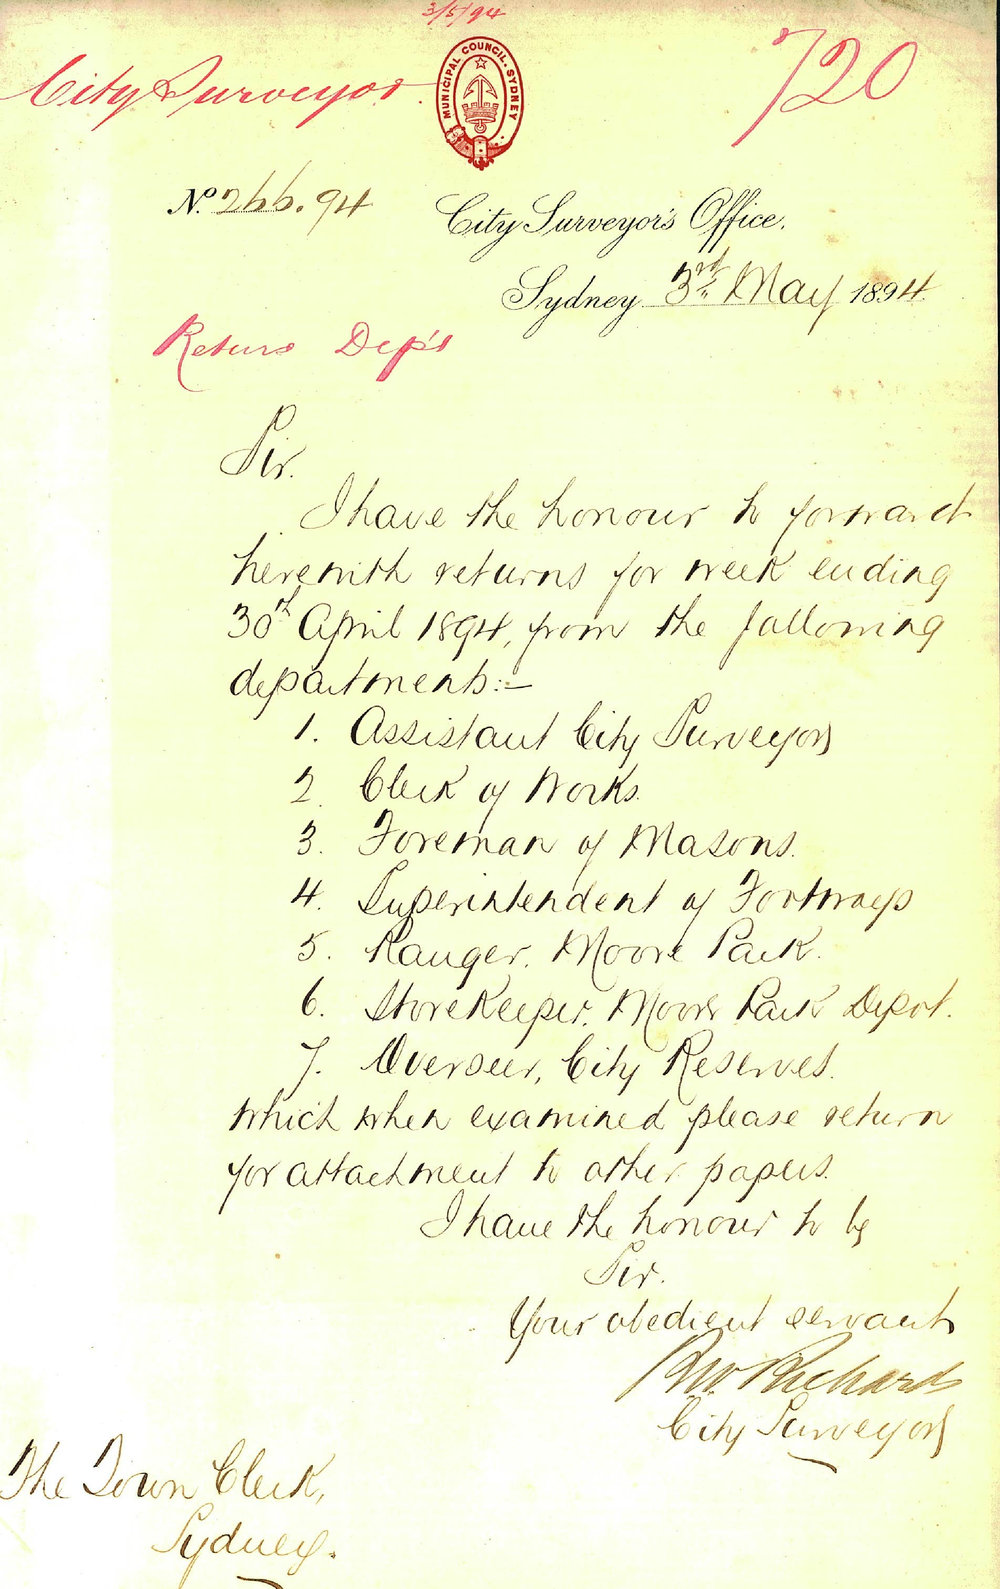 3/5/94
City Surveyor.
MUNICIPAL COUNCIL. SYDNEY
720
No. 266.94
City Surveyor's Office.
Sydney 3rd May 1894.
Returns Dep'ts
Sir.
I have the honour to forward
herewith returns for week ending
30th April 1894, from the following
departments:-
1. Assistant City Surveyor
2. Clerk of Works.
3. Foreman of Masons.
4. Superintendent of Footways
5. Ranger. Moore Park.
6. Storekeeper. Moore Park Depot.
7. Overseer, City Reserves.
which when examined please return
for attachment to other papers.
I have the honour to be
Sir.
Your obedient servant
R.W. Richards
City Surveyor
The Town Clerk,
Sydney.